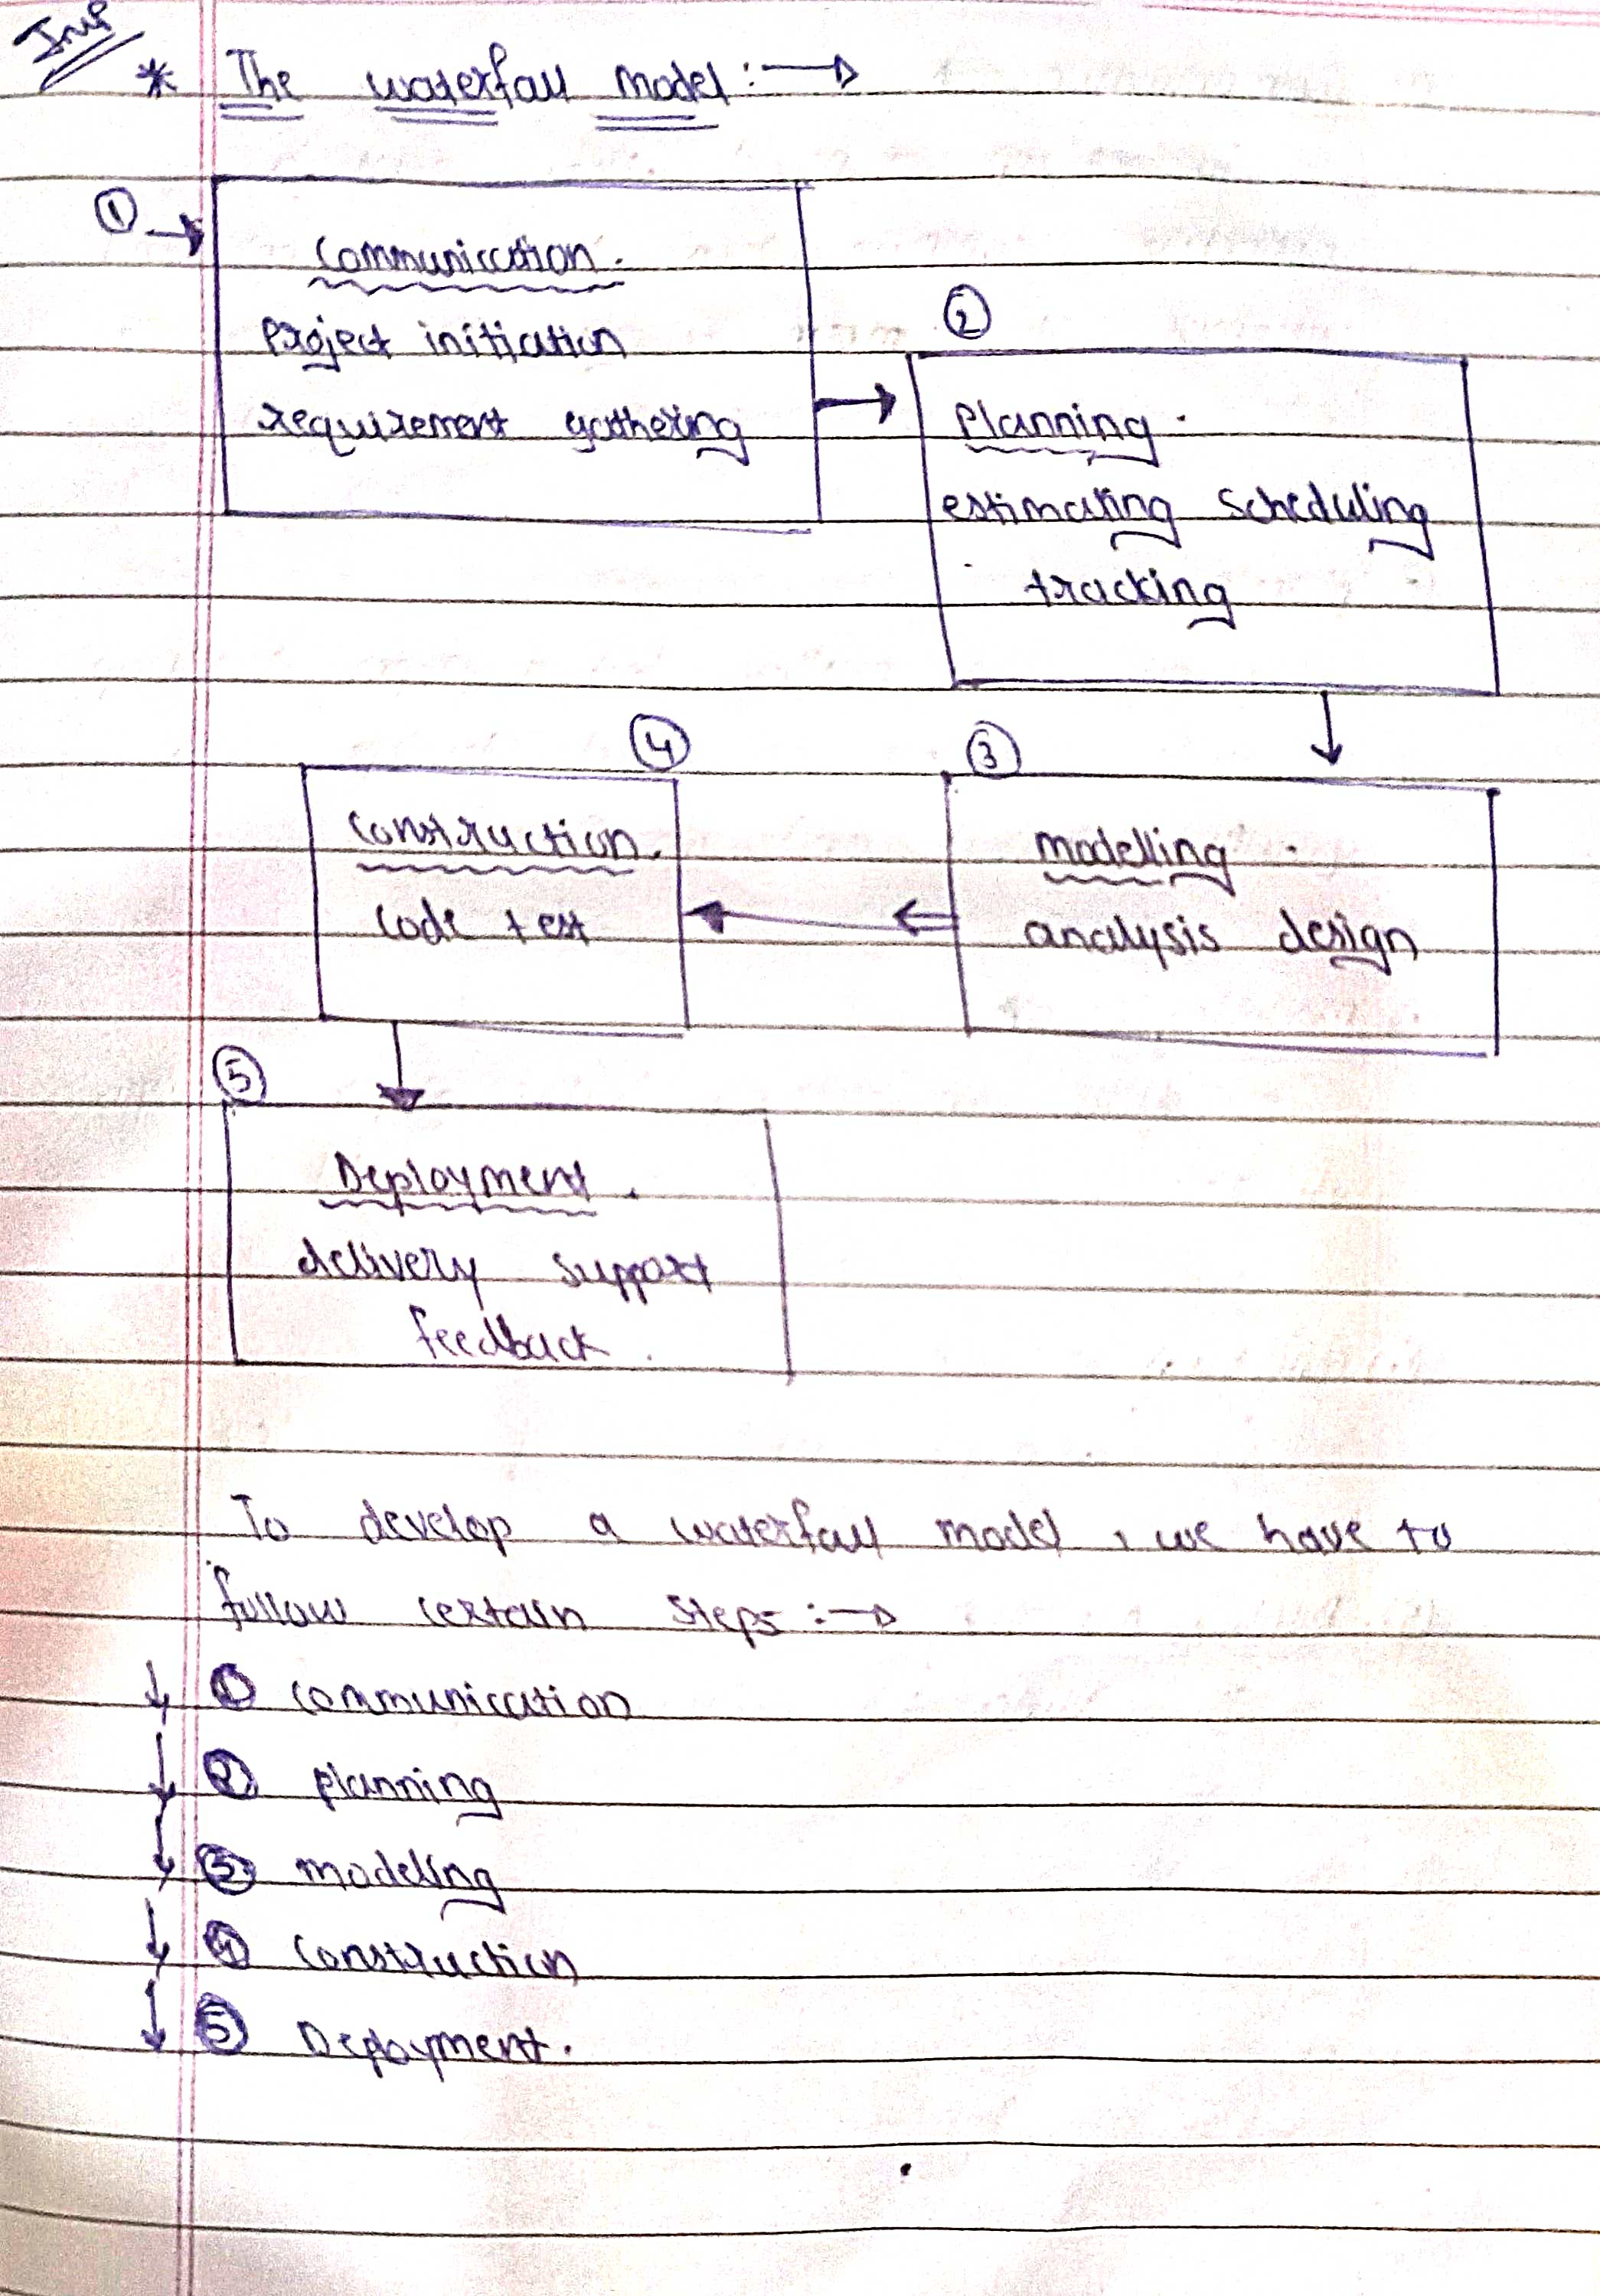 Imp
* The waterfall model :→
① →
Communication.
Project initiation
requirement gathering
②
Planning.
estimating scheduling
tracking
④
③
Construction.
code test
modelling.
analysis design
⑤
Deployment.
delivery support
feedback.
To develop a waterfall model, we have to
follow certain steps :→
↓ ① communication
↓ ② planning
↓ ③ modeling
↓ ④ construction
↓ ⑤ Deployment.